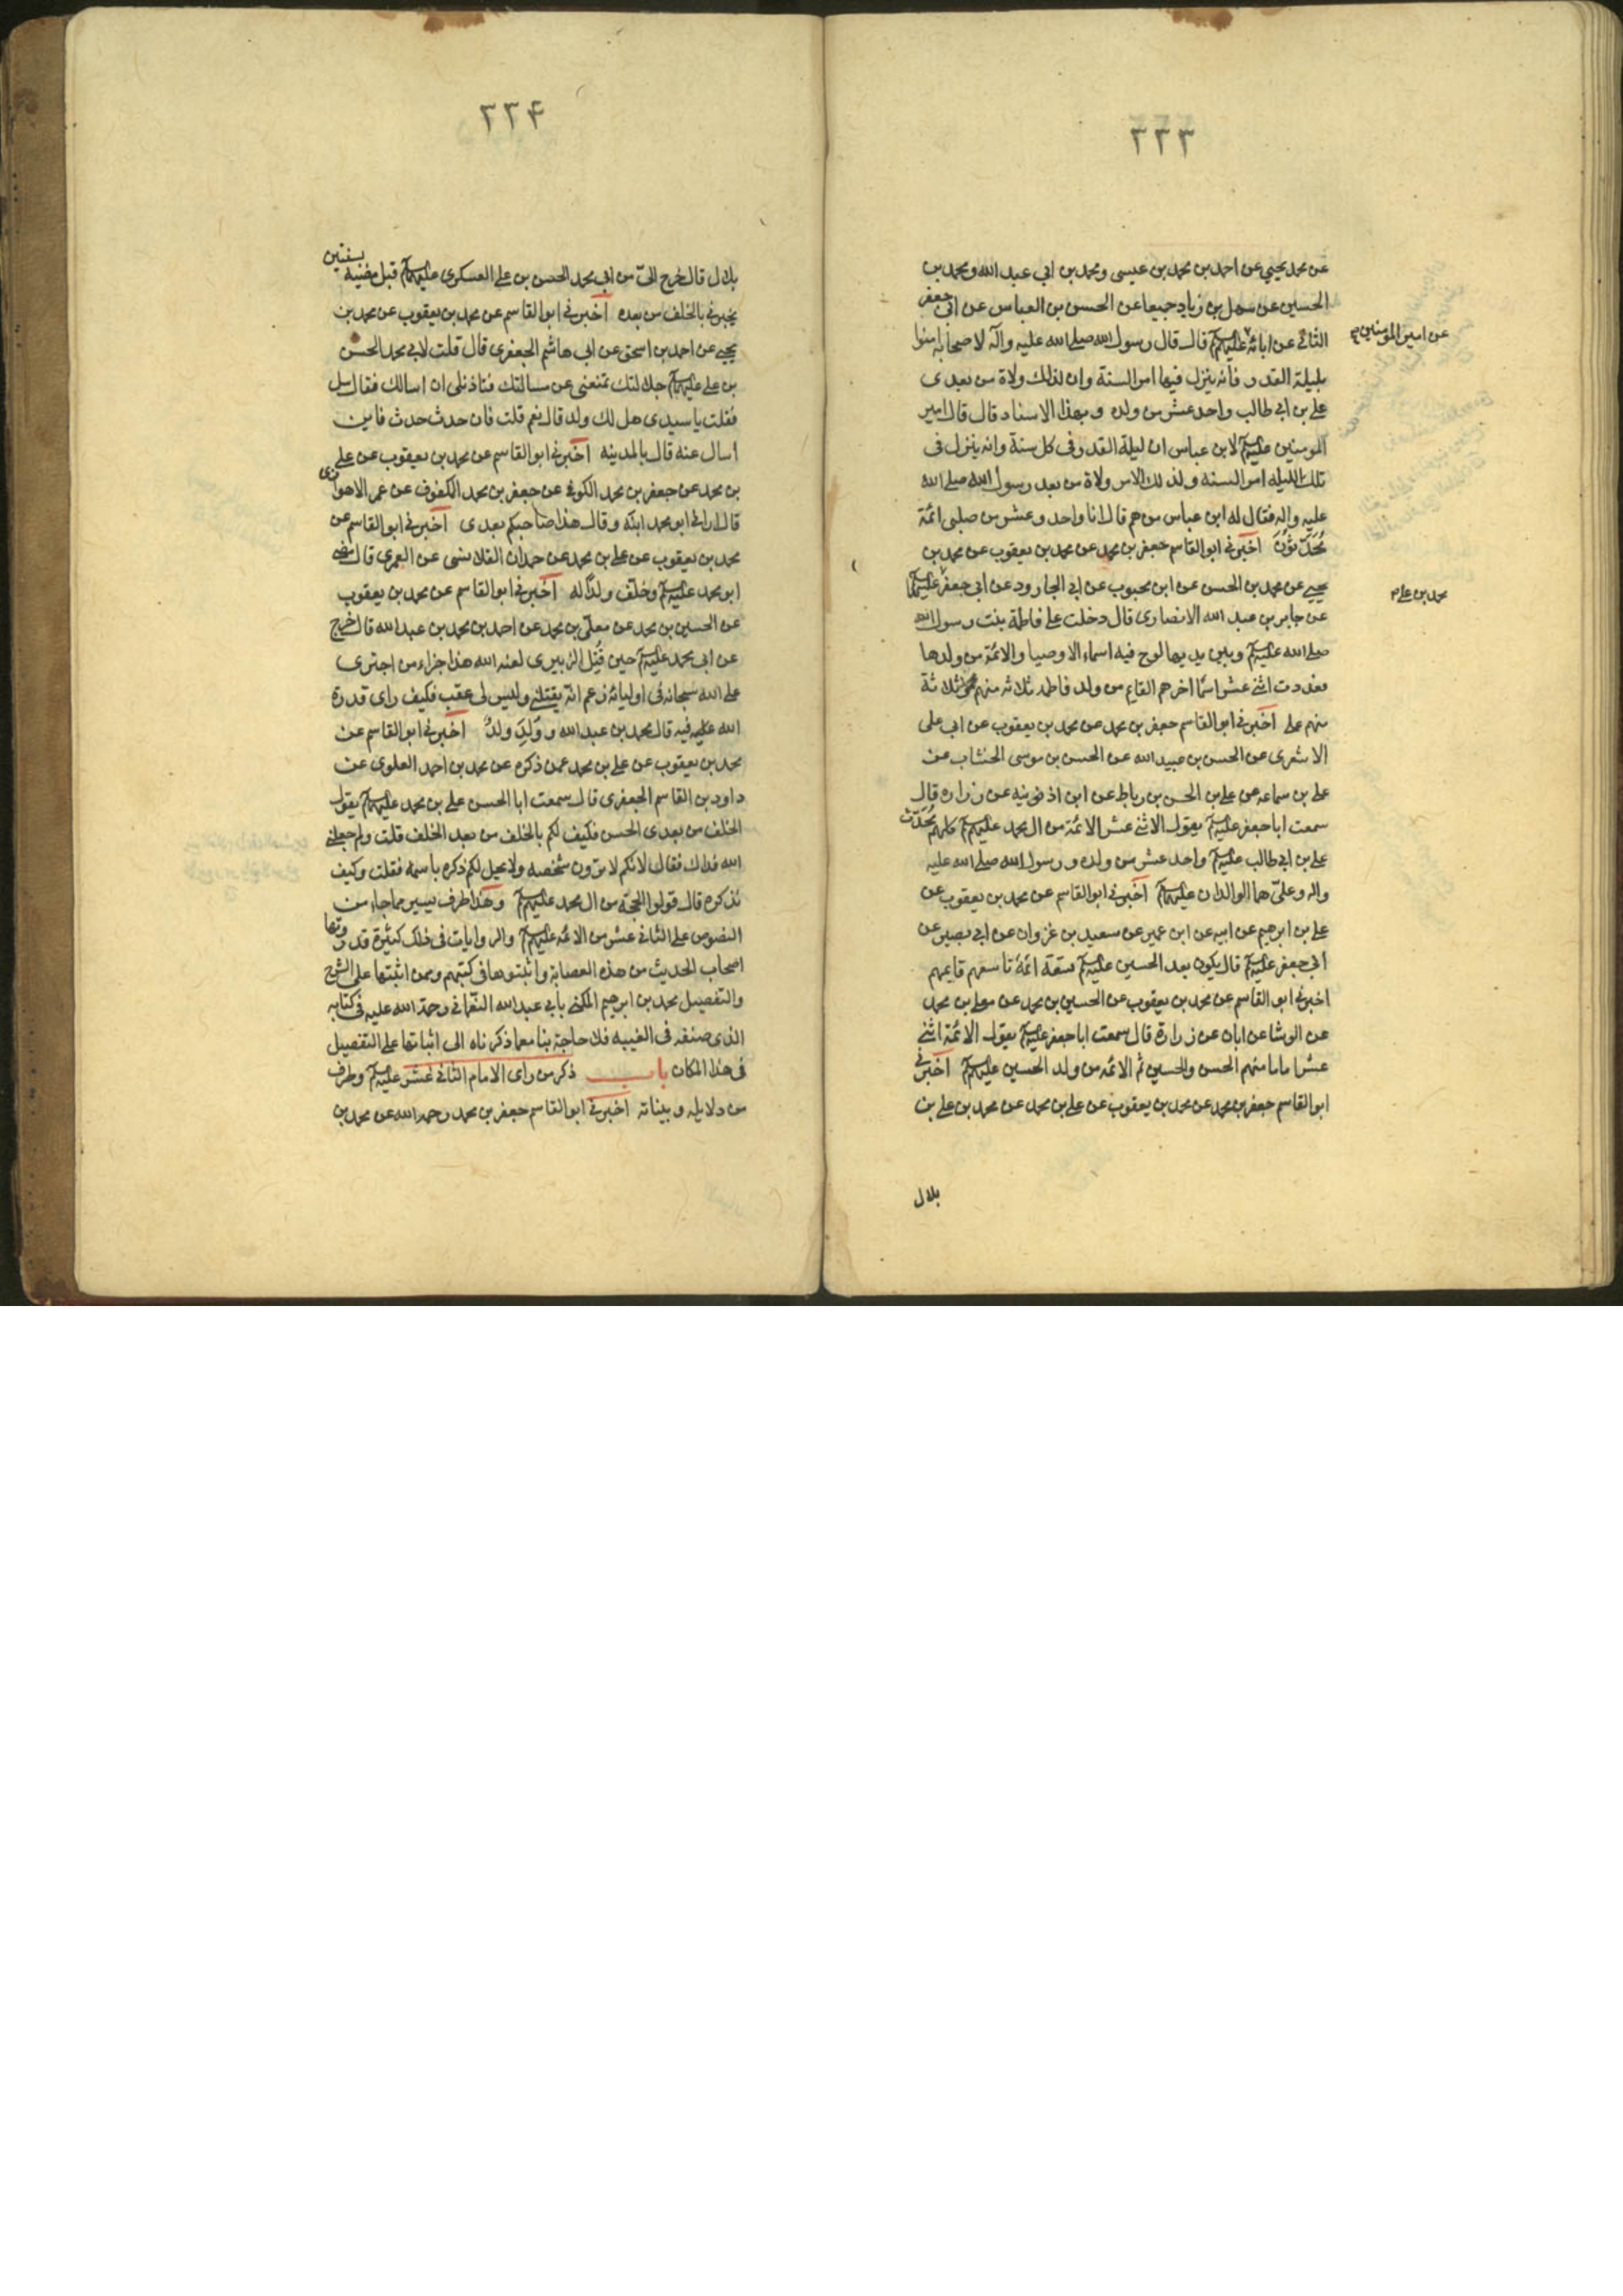 ٣٣٣
عن محمد يحيي عن احمد بن محمد بن عيسى ومحمد بن ابي عبد الله ومحمد بن
الحسين عن سهل بن زياد جميعا عن الحسن بن العباس عن ابي جعفر
الثاني عن ابائه عليهم السلام قال قال رسول الله صلى الله عليه واله لاصحابه امنوا
عن امير المومنين ع
بليلة القدر فانه ينزل فيها امر السنة وان لذلك ولاة من بعدى
علي بن ابي طالب واحد عشر من ولده وبهذا الاسناد قال قال امير
المومنين عليه السلام لابن عباس ان ليلة القدر في كل سنة وانه ينزل فى
تلك الليله امر السنه ولذلك الامر ولاة من بعد رسول الله صلى الله
عليه واله فقال له ابن عباس من هم قال انا واحد وعشر من صلبي ائمة
مُحَدَّثوُنَ اخبرني ابو القاسم جعفر بن محمد عن محمد بن يعقوب عن محمد بن
يحيي عن محمد بن الحسن عن ابن محبوب عن ابي الجارود عن ابي جعفر عليهما السلام
محمد بن علي
عن جابر بن عبد الله الانصارى قال دخلت على فاطمة بنت رسول الله
صلى الله عليه وبين يديها لوح فيه اسماء الاوصيا والائمة من ولدها
فعددت اثنى عشر اسمًا اخرهم القايم من ولد فاطمه ثلاثه منهم محمد وثلاثة
منهم على اخبرني ابو القاسم جعفر بن محمد عن محمد بن يعقوب عن ابي على
الاشعرى عن الحسن بن عبيد الله عن الحسن بن موسى الخشاب عن
علي بن سماعه عن علي بن الحسن بن رباط عن ابن اذنويه عن زراره قال
سمعت ابا جعفر عليه السلام يقول الاثنى عشر الائمة من ال محمد عليهم السلام كلهم مُحَدَّث
علي بن ابي طالب عليه السلام واحد عشر من ولده ورسول الله صلى الله عليه
واله وعلىّ هما الوالدان عليهما السلام اخبرني ابو القاسم عن محمد بن يعقوب عن
علي بن ابرهيم عن ابيه عن ابن عمير عن سعيد بن غزوان عن ابي نصير عن
ابي جعفر عليه السلام قال يكون بعد الحسين عليه السلام تسعة ائمة تاسعهم قايمهم
اخبرني ابو القاسم عن محمد بن يعقوب عن الحسين بن محمد عن معلى بن محمد
عن الوشا عن ابان عن زرارة قال سمعت ابا جعفر عليه السلام يقول الائمة اثنى
عشر اماما منهم الحسن والحسين ثم الائمه من ولد الحسين عليهم السلام اخبرني
ابو القاسم جعفر بن محمد عن محمد بن يعقوب عن علي بن محمد عن محمد بن علي بن
بلال
٣٣۴
بلال قال خرج الىّ من ابي محمد الحسن بن على العسكرى عليهما السلام قبل مضيه بسنتين
يخبرني بالخلف من بعده اخبرني ابو القاسم عن محمد بن يعقوب عن محمد بن
يحيي عن احمد بن اسحق عن ابي هاشم الجعفرى قال قلت لابي محمد الحسن
بن على عليهما السلام جلالتك تمنعنى عن مسالتك فتاذن لى ان اسالك فقال سل
فقلت ياسيدى هل لك ولد قال نعم قلت فان حدث حدث فاين
اسال عنه قال بالمدينه اخبرني ابو القاسم عن محمد بن يعقوب عن علي
بن محمد عن جعفر بن محمد الكوفي عن جعفر بن محمد المكفوف عن عمر الاهوازى
قال اراني ابو محمد ابنَه وقال هذا صاحبكم بعدى اخبرني ابو القاسم عن
محمد بن يعقوب عن علي بن محمد عن حمدان القلانسى عن العمرى قال مضى
ابو محمد عليه السلام وخلّف ولدًا له اخبرني ابو القاسم عن محمد بن يعقوب
عن الحسين بن محمد عن معلّى بن محمد عن احمد بن محمد بن عبد الله قال خرج
عن ابي محمد عليه السلام حين قُتِل الزبيرى لعنه الله هذا جزاء من اجترى
على الله سبحانه فى اوليائه زعم انّه يقتلني وليس لى عقب فكيف راى قدرة
الله عليه فيه قال محمد بن عبد الله ووُلِدَ وَلدٌ اخبرني ابو القاسم عن
محمد بن يعقوب عن علي بن محمد عمن ذكره عن محمد بن احمد العلوى عن
داود بن القاسم الجعفرى قال سمعت ابا الحسن علي بن محمد عليهما السلام يقول
الخلف من بعدى الحسن فكيف لكم بالخلف من بعد الخلف قلت ولم جعلني
الله فداك فقال لانكم لا ترون شخصه ولا يحل لكم ذكره باسمه فقلت وكيف
نذكره قال قولوا الحجّة من ال محمد عليهم السلام وهذا طرف يسير مما جاء من
النصوص على الثاني عشر من الائمه عليهم السلام والروايات فى ذلك كثيرة قد دوّنها
اصحاب الحديث من هذه العصابة واثبتوها فى كتبهم وممن اثبتها على الشرح
والتفصيل محمد بن ابرهيم المكنى بابي عبد الله النعماني رحمة الله عليه فى كتابه
الذى صنفه فى الغيبه فلا حاجة بنا معما ذكرناه الى اثباتها على التفصيل
فى هذا المكان باب ذكر من راى الامام الثاني عشر عليه السلام وطرف
من دلايله وبيناته اخبرني ابو القاسم جعفر بن محمد رحمه الله عن محمد بن